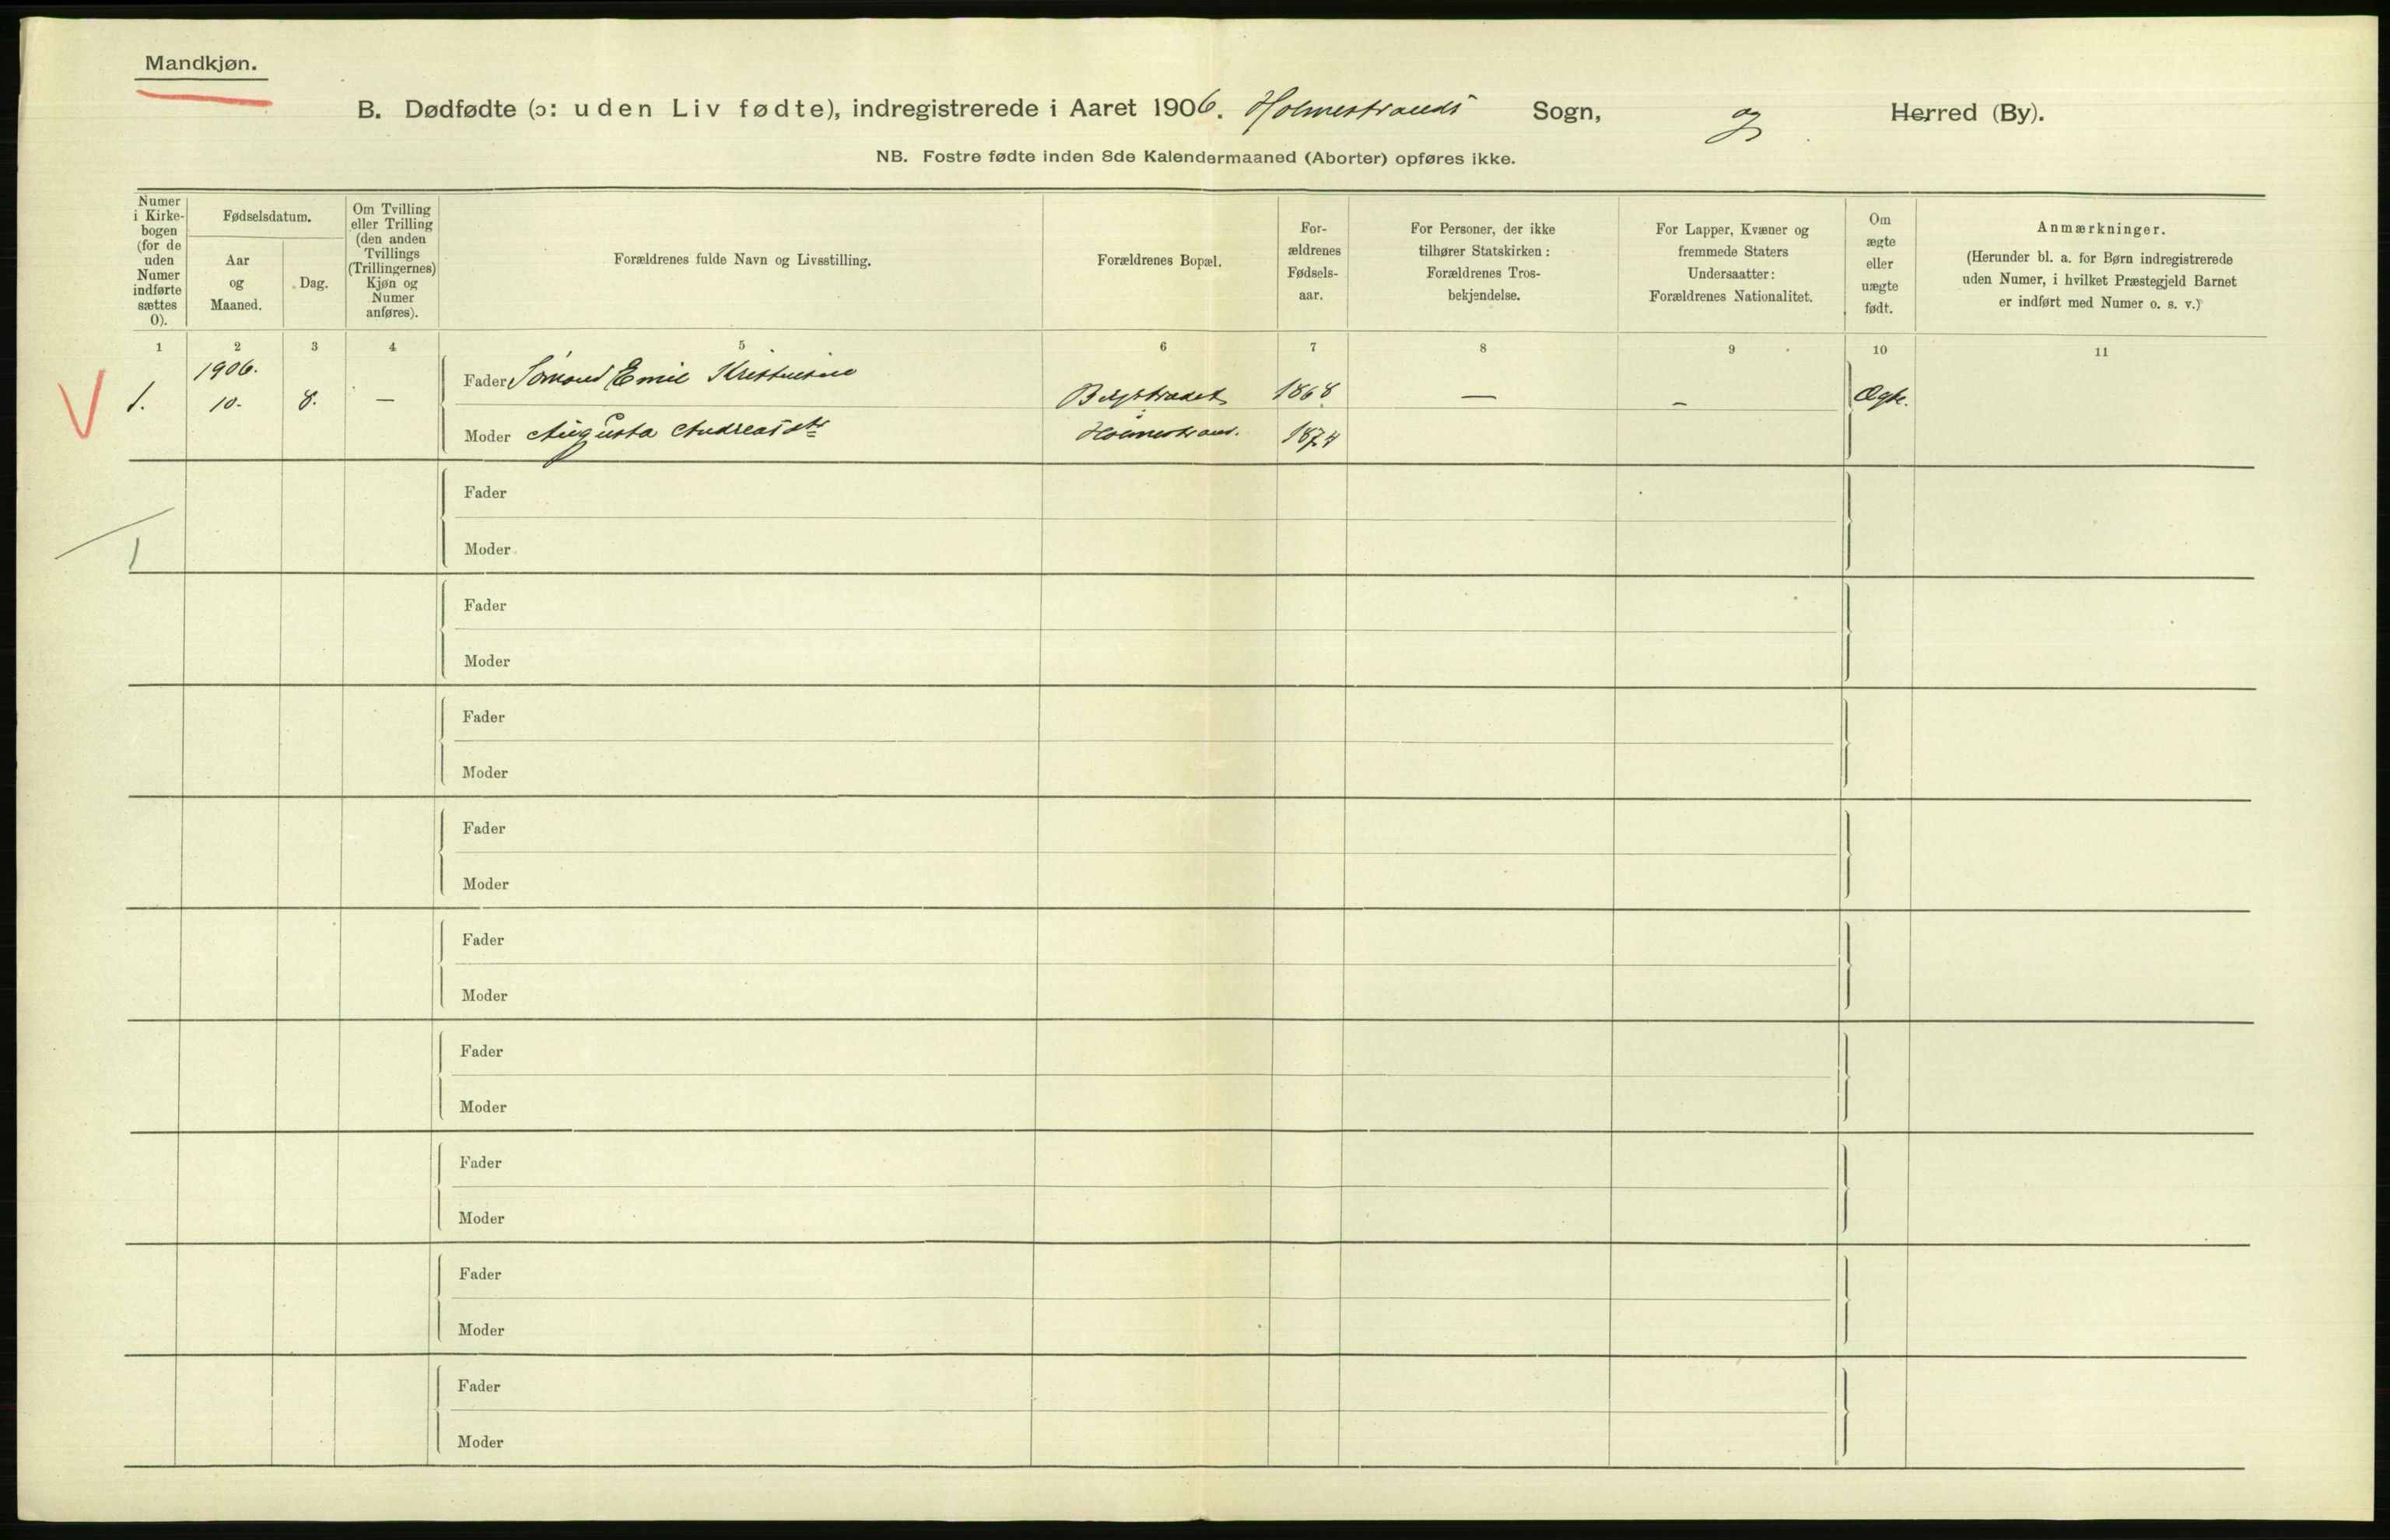 Mandkjøn.
B. Dødfødte (ɔ: uden Liv fødte), indregistrerede i Aaret 1906. Holmestrands Sogn, og Herred (By).
NB. Fostre fødte inden 8de Kalendermaaned (Aborter) opføres ikke.
Numer i Kirkebogen (for de uden Numer indførte sættes 0).
Fødselsdatum.
Aar og Maaned.
Dag.
Om Tvilling eller Trilling (den anden Tvillings (Trillingernes) Kjøn og Numer anføres).
Forældrenes fulde Navn og Livsstilling.
Forældrenes Bopæl.
Forældrenes Fødselsaar.
For Personer, der ikke tilhører Statskirken: Forældrenes Trosbekjendelse.
For Lapper, Kvæner og fremmede Staters Undersaatter: Forældrenes Nationalitet.
Om ægte eller uægte født.
Anmærkninger.
(Herunder bl. a. for Børn indregistrerede uden Numer, i hvilket Præstegjeld Barnet er indført med Numer o. s. v.)
1 2 3 4 5 6 7 8 9 10 11
1906.
Fader Sømand Emil Kristiansen
1. 10. 8. — 1868 — – Ægte.
Moder Augusta Andreasdtr Holmestrand. 1874
Fader
1
Moder
Fader
Moder
Fader
Moder
Fader
Moder
Fader
Moder
Fader
Moder
Fader
Moder
Fader
Moder
Fader
Moder